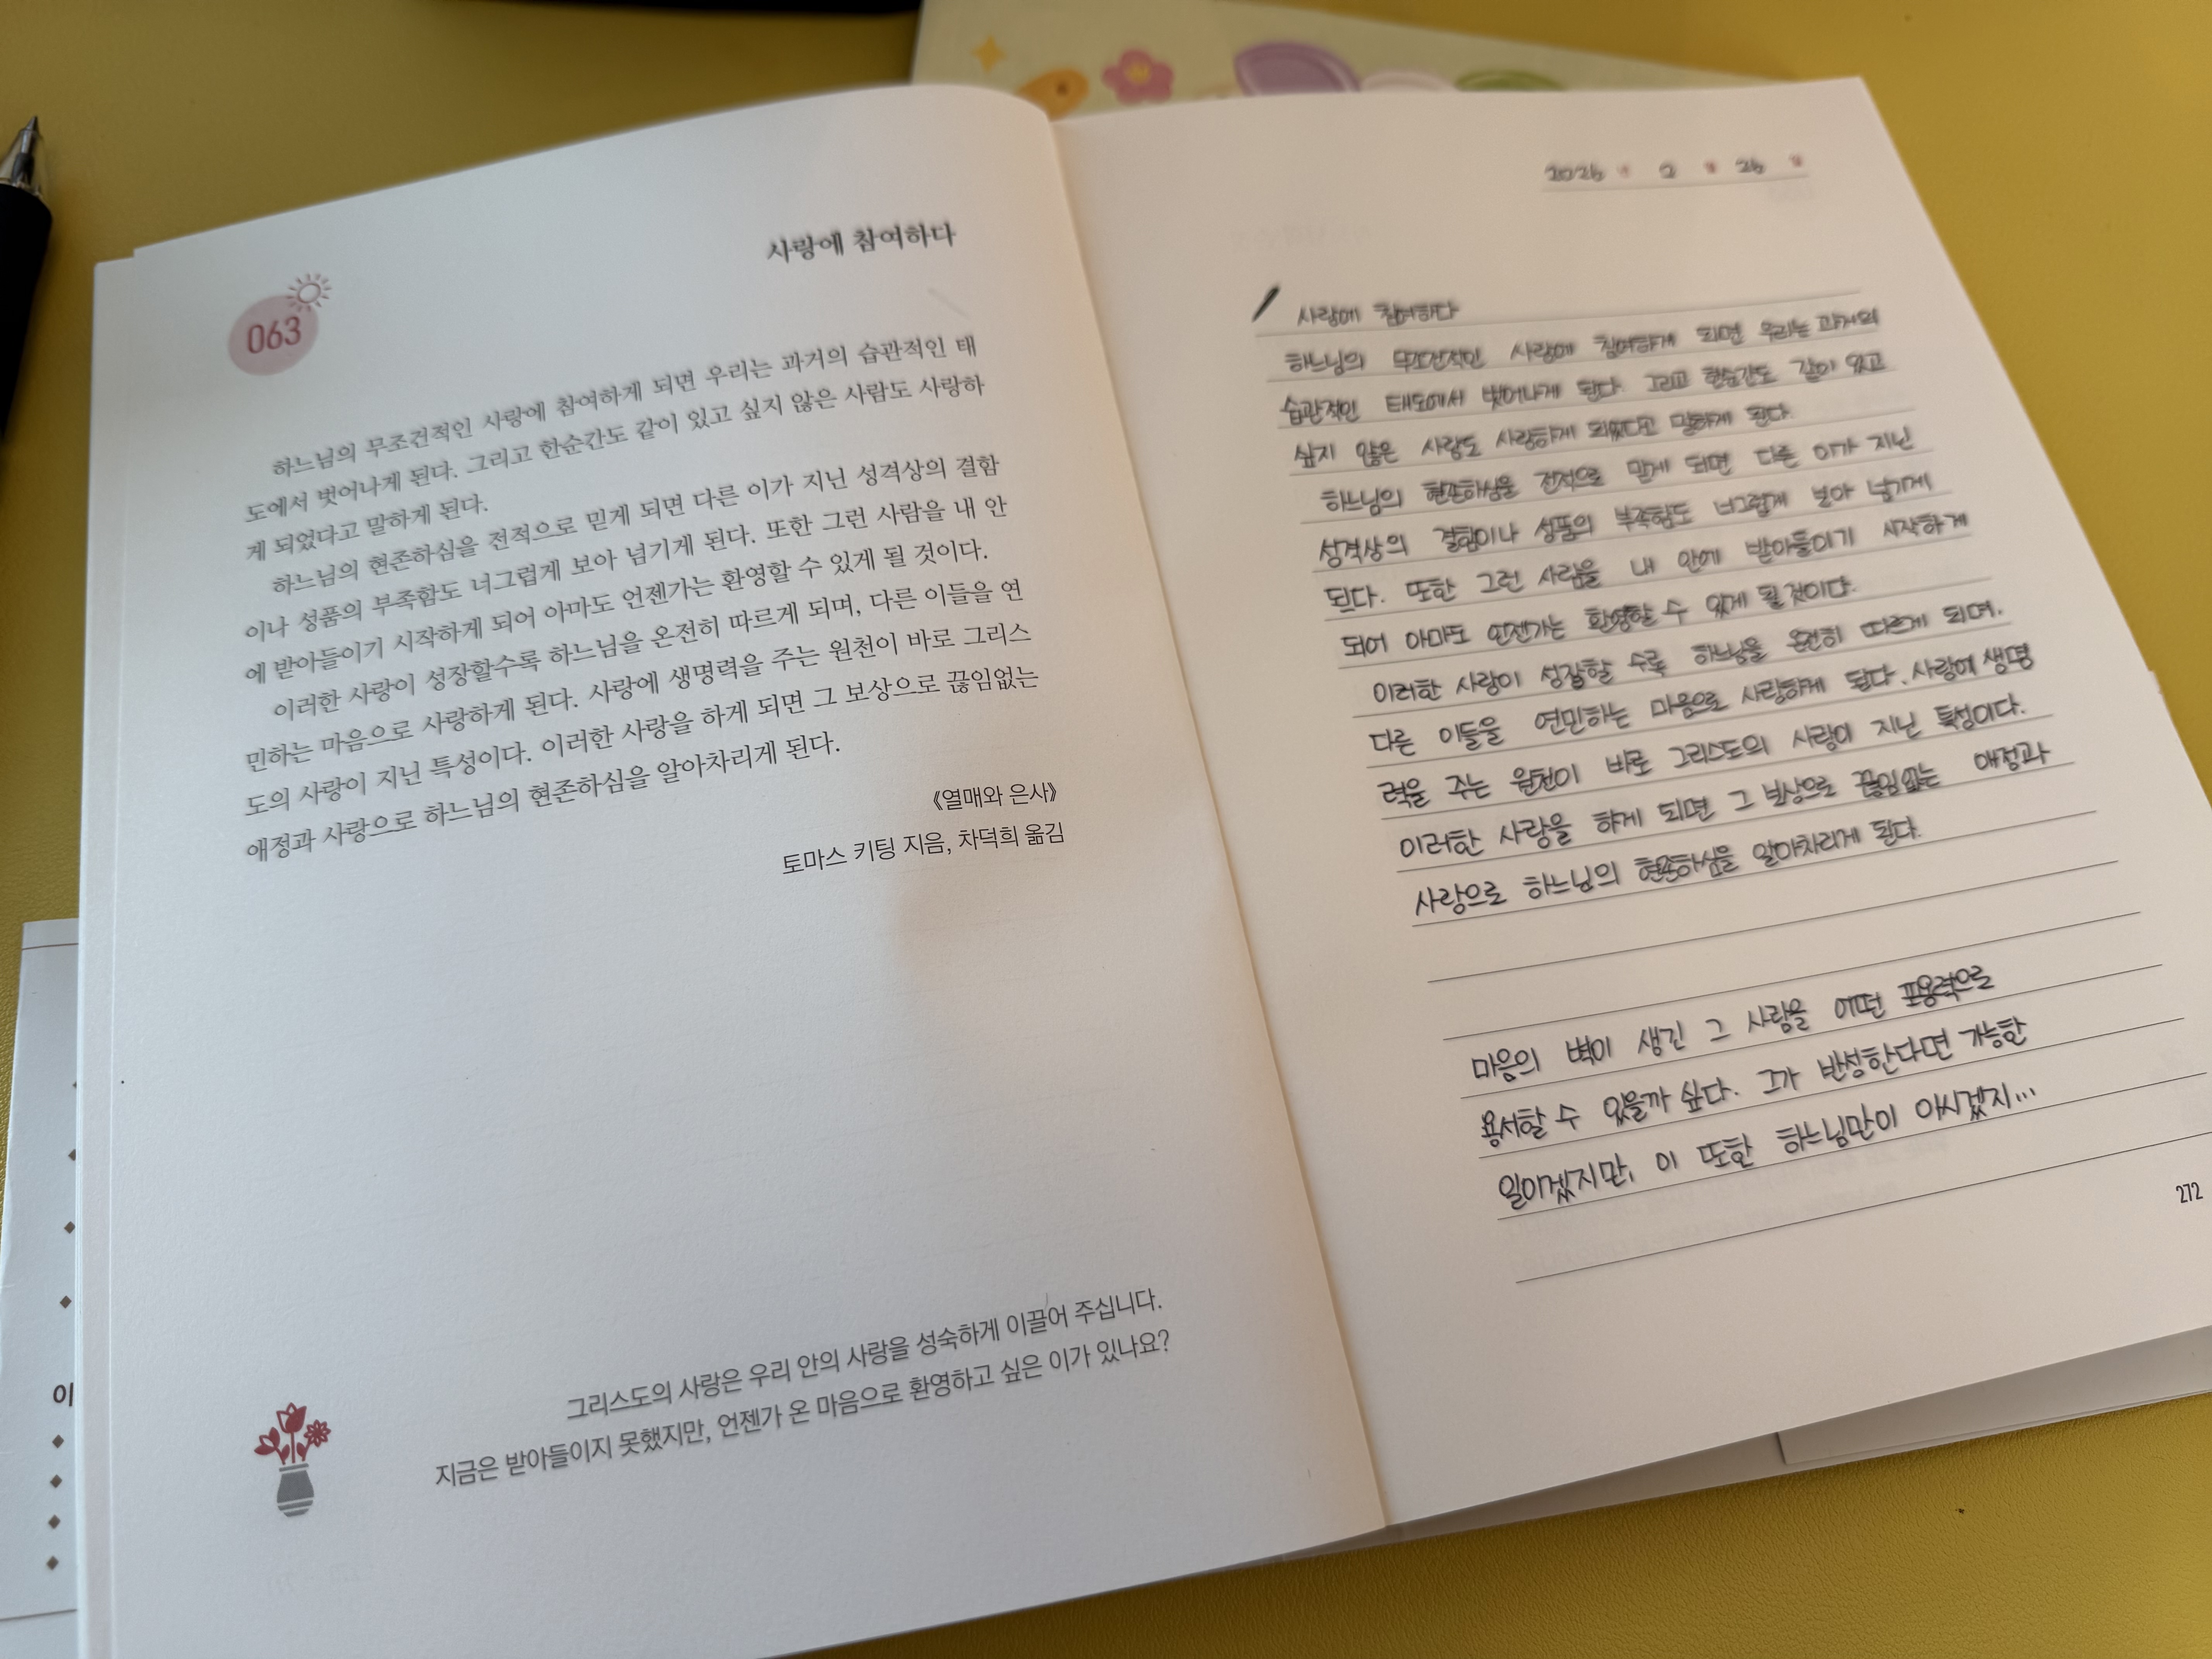 사랑에 참여하다
063
하느님의 무조건적인 사랑에 참여하게 되면 우리는 과거의 습관적인 태
도에서 벗어나게 된다. 그리고 한순간도 같이 있고 싶지 않은 사람도 사랑하
게 되었다고 말하게 된다.
하느님의 현존하심을 전적으로 믿게 되면 다른 이가 지닌 성격상의 결함
이나 성품의 부족함도 너그럽게 보아 넘기게 된다. 또한 그런 사람을 내 안
에 받아들이기 시작하게 되어 아마도 언젠가는 환영할 수 있게 될 것이다.
이러한 사랑이 성장할수록 하느님을 온전히 따르게 되며, 다른 이들을 연
민하는 마음으로 사랑하게 된다. 사랑에 생명력을 주는 원천이 바로 그리스
도의 사랑이 지닌 특성이다. 이러한 사랑을 하게 되면 그 보상으로 끊임없는
애정과 사랑으로 하느님의 현존하심을 알아차리게 된다.
《열매와 은사》
토마스 키팅 지음, 차덕희 옮김
그리스도의 사랑은 우리 안의 사랑을 성숙하게 이끌어 주십니다.
지금은 받아들이지 못했지만, 언젠가 온 마음으로 환영하고 싶은 이가 있나요?
이
2026 년 2 월 26 일
사랑에 참여하다
하느님의 무조건적인 사랑에 참여하게 되면 우리는 과거의
습관적인 태도에서 벗어나게 된다. 그리고 한순간도 같이 있고
싶지 않은 사람도 사랑하게 되었다고 말하게 된다.
하느님의 현존하심을 전적으로 믿게 되면 다른 이가 지닌
성격상의 결함이나 성품의 부족함도 너그럽게 보아 넘기게
된다. 또한 그런 사람을 내 안에 받아들이기 시작하게
되어 아마도 언젠가는 환영할 수 있게 될 것이다.
이러한 사랑이 성장할 수록 하느님을 온전히 따르게 되며,
다른 이들을 연민하는 마음으로 사랑하게 된다. 사랑에 생명
력을 주는 원천이 바로 그리스도의 사랑이 지닌 특성이다.
이러한 사랑을 하게 되면 그 보상으로 끊임없는 애정과
사랑으로 하느님의 현존하심을 알아차리게 된다.
마음의 벽이 생긴 그 사람을 어떤 포용력으로
용서할 수 있을까 싶다. 그가 반성한다면 가능한
일이겠지만, 이 또한 하느님만이 아시겠지...
272